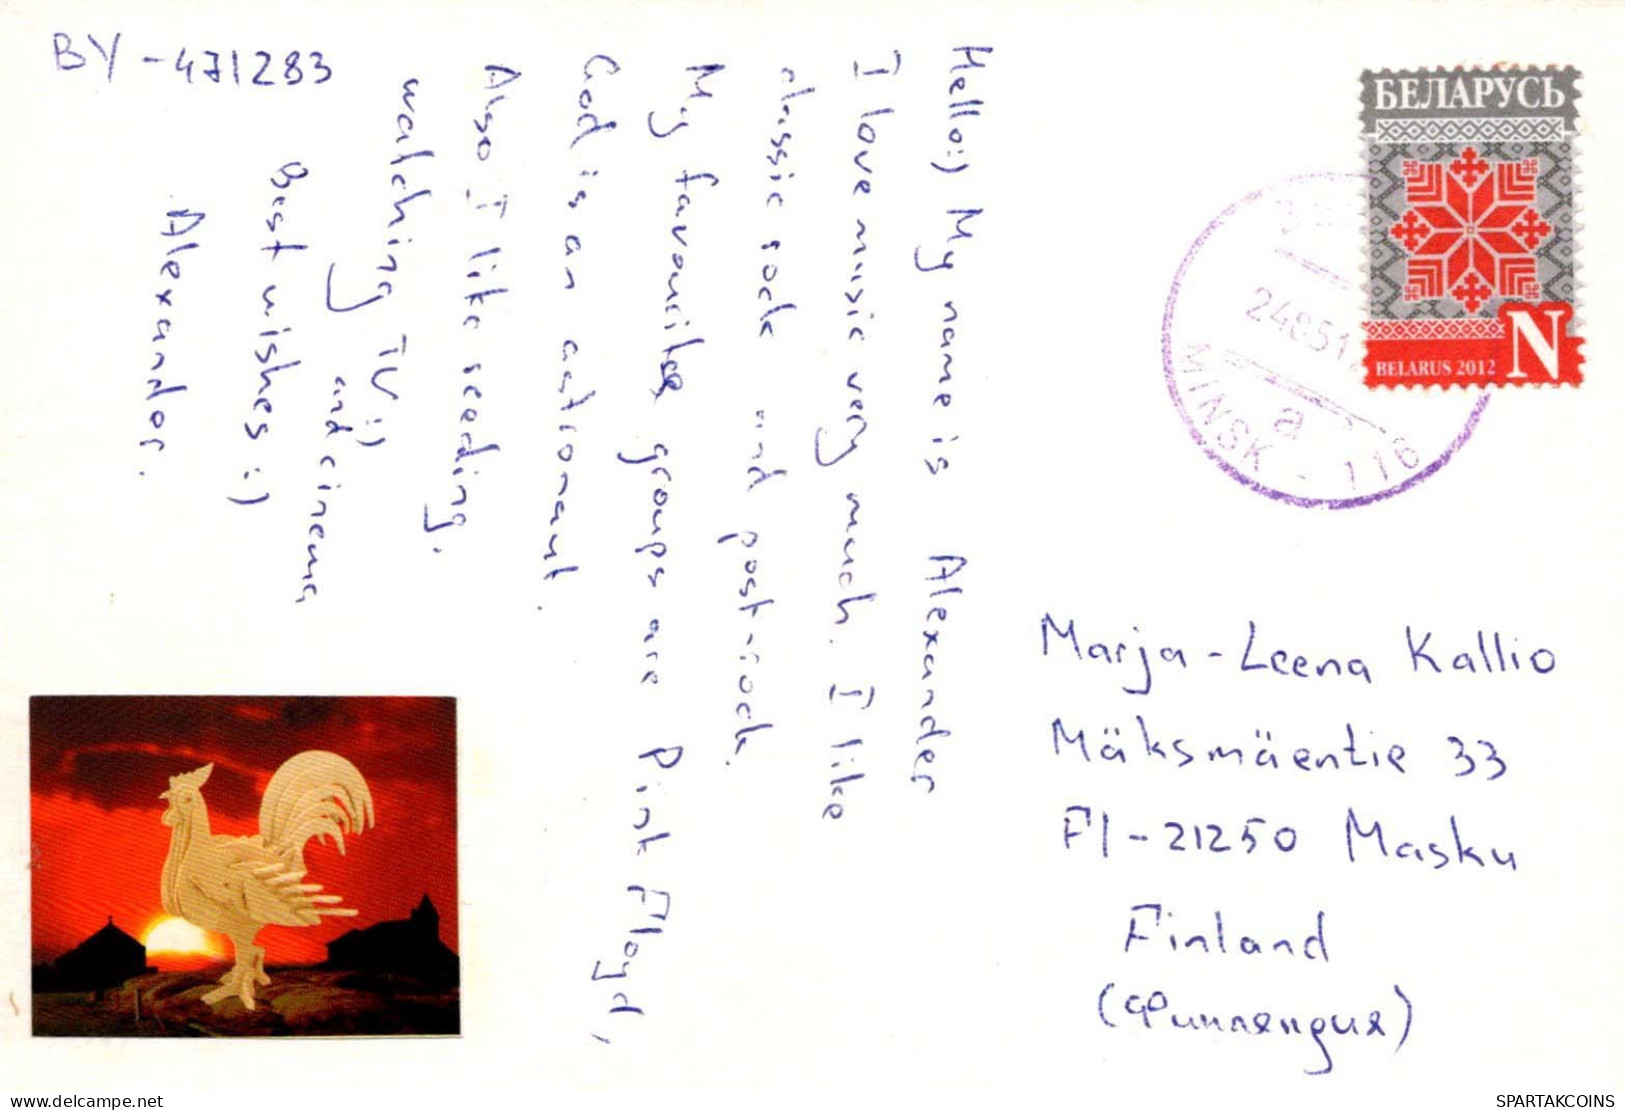 BY-471283
Hello:) My name is Alexander
I love music very much. I like
classic rock and post-rock.
My favourite groups are Pink Floyd,
God is an astronaut.
Also I like reading,
watching TV:)
and cinema
Best wishes :)
Alexander.
БЕЛАРУСЬ
BELARUS 2012
N
MINSK - 116
a
Marja-Leena Kallio
Mäksmäentie 33
FI-21250 Masku
Finland
(Финляндия)
SPARTAKCOINS
https://www.delcampe.net